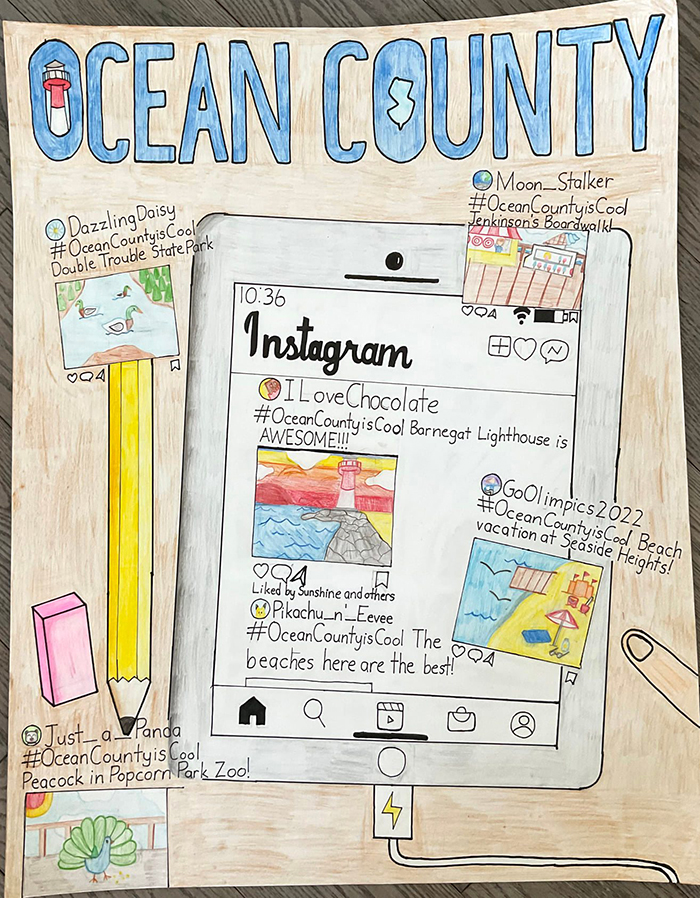 OCEAN COUNTY
Moon_Stalker
#OceanCountyisCool
Jenkinson's Boardwalk!
DazzlingDaisy
#OceanCountyisCool
Double Trouble State Park
10:36
Instagram
ILoveChocolate
#OceanCountyisCool Barnegat Lighthouse is
AWESOME!!!
Liked by Sunshine and others
GoOlimpics2022
#OceanCountyisCool Beach
vacation at Seaside Heights!
Pikachu_n'_Eevee
#OceanCountyisCool The
beaches here are the best!
Just_a_Panda
#OceanCountyisCool
Peacock in Popcorn Park Zoo!